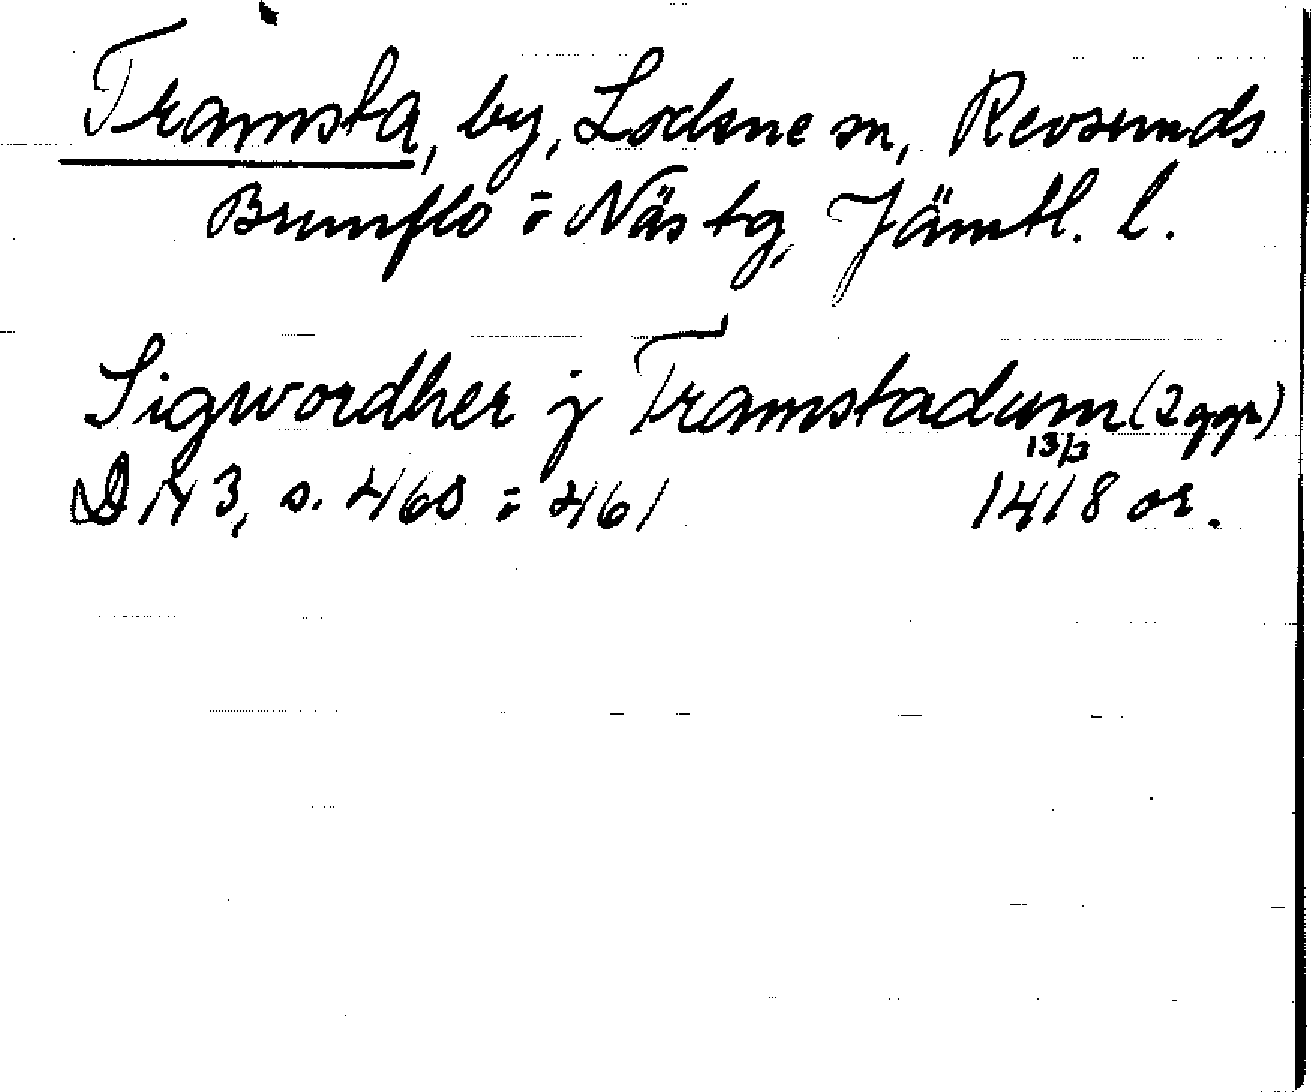 Tramsta, by, Lockne sn, Revsunds
Brunflo o Näs tg, Jämtl. l.
Sigwordher j Tramstadum (2 ggr)
13/3
DN 3, s. 460 o 461 1418 or.